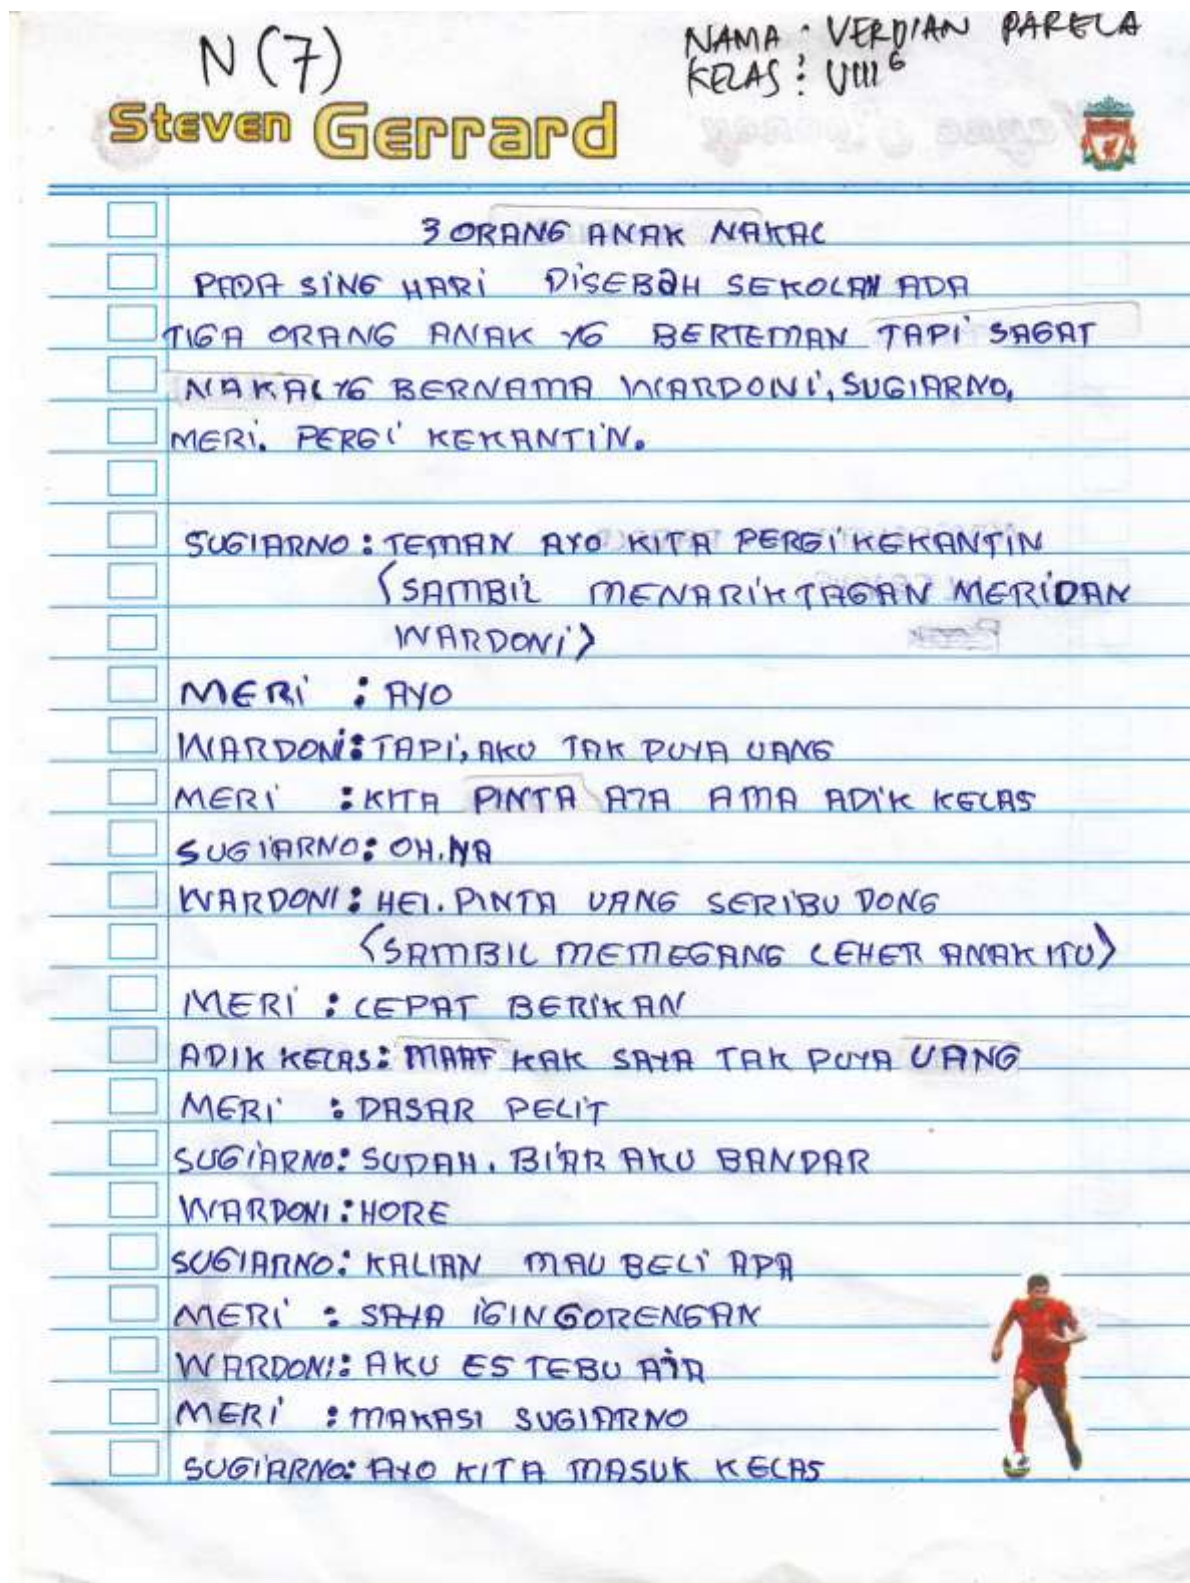 N (7)
NAMA : VERDIAN PARELA
KELAS : VIII G
Steven Gerrard
3 ORANG ANAK NAKAL
PADA SING HARI DISEBAH SEKOLAH ADA
TIGA ORANG ANAK YG BERTEMAN TAPI SAGAT
NAKAL YG BERNAMA WARDONI, SUGIARNO,
MERI. PERGI KEKANTIN.
SUGIARNO : TEMAN AYO KITA PERGI KEKANTIN
(SAMBIL MENARIK TAGAN MERI DAN
WARDONI)
MERI : AYO
WARDONI : TAPI, AKU TAK PUYA UANG
MERI : KITA PINTA AJA AMA ADIK KELAS
SUGIARNO : OH. YA
WARDONI : HEI. PINTA UANG SERIBU DONG
(SAMBIL MEMEGANG LEHER ANAK ITU)
MERI : CEPAT BERIKAN
ADIK KELAS : MAAF KAK SAYA TAK PUYA UANG
MERI : DASAR PELIT
SUGIARNO : SUDAH. BIAR AKU BANDAR
WARDONI : HORE
SUGIARNO : KALIAN MAU BELI APA
MERI : SAYA IGIN GORENGAN
WARDONI : AKU ES TEBU AIR
MERI : MAKASI SUGIARNO
SUGIARNO : AYO KITA MASUK KELAS